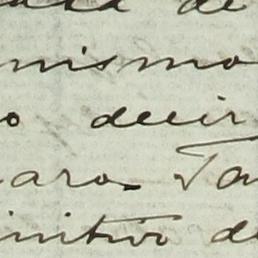 de
mismo
o decir
aro. Ta
initivo de